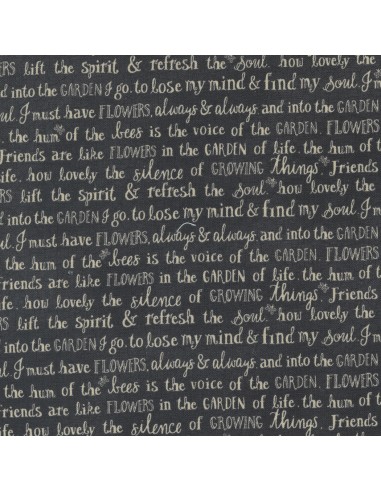 ERS lift the spirit & refresh the Soul. how lovely the
d into the GARDEN I go. to lose my mind & find my Soul. I m
ul. I must have FLOWERS, always & always. and into the GARDEN
. the hum of the bees is the voice of the GARDEN. FLOWERS
Friends are like FLOWERS in the GARDEN of life. the hum of t
ife. how lovely the silence of GROWING things. Friends
RS lift the spirit & refresh the Soul. how lovely the
d into the GARDEN I go. to lose my mind & find my Soul. I m
l. I must have FLOWERS, always & always. and into the GARDEN
the hum of the bees is the voice of the GARDEN. FLOWERS
riends are like FLOWERS in the GARDEN of life. the hum of t
e. how lovely the silence of GROWING things. Friends
RS lift the spirit & refresh the Soul. how lovely the
into the GARDEN I go. to lose my mind & find my Soul. I m
l. I must have FLOWERS, always & always. and into the GARDEN
the hum of the bees is the voice of the GARDEN. FLOWERS
Friends are like FLOWERS in the GARDEN of life. the hum of t
ife. how lovely the silence of GROWING things. Friends